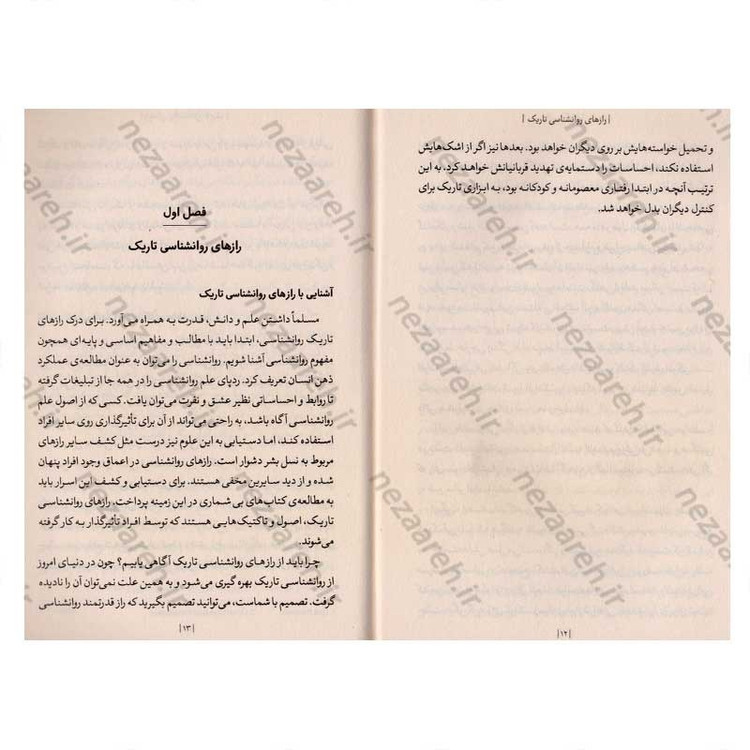 | رازهای روانشناسی تاریک |
و تحمیل خواسته‌هایش بر روی دیگران خواهد بود. بعدها نیز اگر از اشک‌هایش
استفاده نکند، احساسات را دستمایه‌ی تهدید قربانیانش خواهد کرد، به این
ترتیب آنچه در ابتدا رفتاری معصومانه و کودکانه بود، به ابزاری تاریک برای
کنترل دیگران بدل خواهد شد.
| ۱۲ |
فصل اول
رازهای روانشناسی تاریک
آشنایی با رازهای روانشناسی تاریک
مسلماً داشتن علم و دانش، قدرت به همراه می‌آورد. برای درک رازهای
تاریک روانشناسی، ابتدا باید با مطالب و مفاهیم اساسی و پایه‌ای همچون
مفهوم روانشناسی آشنا شویم. روانشناسی را می‌توان به عنوان مطالعه‌ی عملکرد
ذهن انسان تعریف کرد. ردپای علم روانشناسی را در همه جا از تبلیغات گرفته
تا روابط و احساساتی نظیر عشق و نفرت می‌توان یافت. کسی که از اصول علم
روانشناسی آگاه باشد، به راحتی می‌تواند از آن برای تأثیرگذاری روی سایر افراد
استفاده کند، اما دستیابی به این علوم نیز درست مثل کشف سایر رازهای
مربوط به نسل بشر دشوار است. رازهای روانشناسی در اعماق وجود افراد پنهان
شده و از دید سایرین مخفی هستند. برای دستیابی و کشف این اسرار باید
به مطالعه‌ی کتاب‌های بی شماری در این زمینه پرداخت. رازهای روانشناسی
تاریک، اصول و تاکتیک‌هایی هستند که توسط افراد تأثیرگذار به کار گرفته
می‌شوند.
چرا باید از رازهای روانشناسی تاریک آگاهی یابیم؟ چون در دنیای امروز
از روانشناسی تاریک بهره گیری می‌شود و به همین علت نمی‌توان آن را نادیده
گرفت. تصمیم با شماست، می‌توانید تصمیم بگیرید که راز قدرتمند روانشناسی
| ۱۳ |
nezaareh.ir
nezaareh.ir
nezaareh.ir
nezaareh.ir
nezaareh.ir
nezaareh.ir
nezaareh.ir
nezaareh.ir
nezaareh.ir